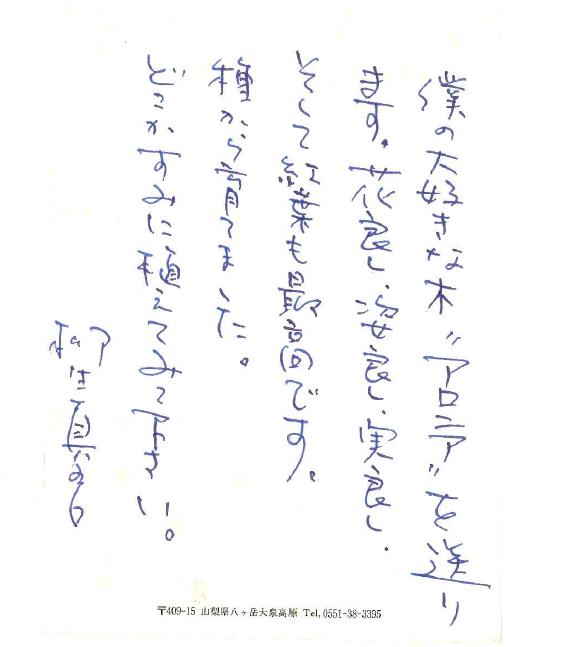 僕の大好きな木"アロニア"を送り
ます。花良し、姿良し、実良し、
そして紅葉も最高です。
種から育てました。
どこかすみに植えてみて下さい。
柳生真吾
〒409-15 山梨県八ヶ岳大泉高原 Tel, 0551-38-3395